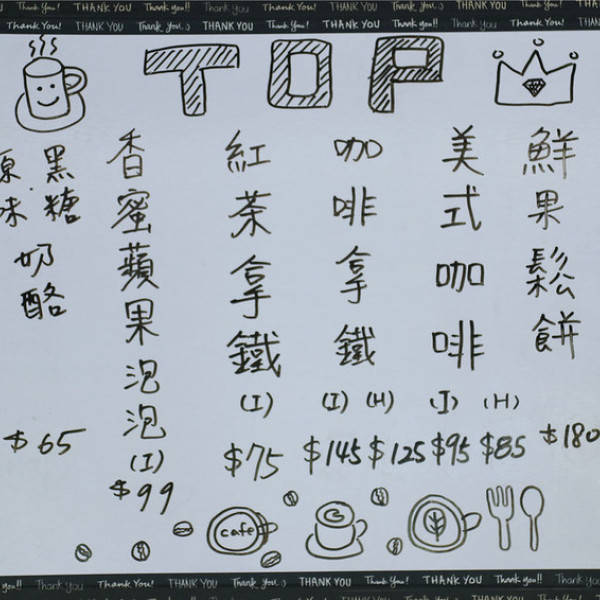 Thank You! THANK YOU Thank you!! Thank You THANK YOU Thank You! THANK YOU
Thank You! THANK YOU Thank You. :) THANK YOU Thank You! THANK YOU Thank you!! THANK YOU
TOP
鮮果鬆餅
$180
美式咖啡
(I) (H)
$95 $85
咖啡拿鐵
(I) (H)
$145 $125
紅茶拿鐵
(I)
$75
香蜜蘋果泡泡
(I)
$99
黑糖
原味
奶酪
$65
cafe
you!! Thank You Thank You! THANK YOU Thank You. :) THANK YOU Thank You! THANK YOU Thank you!! Thank You